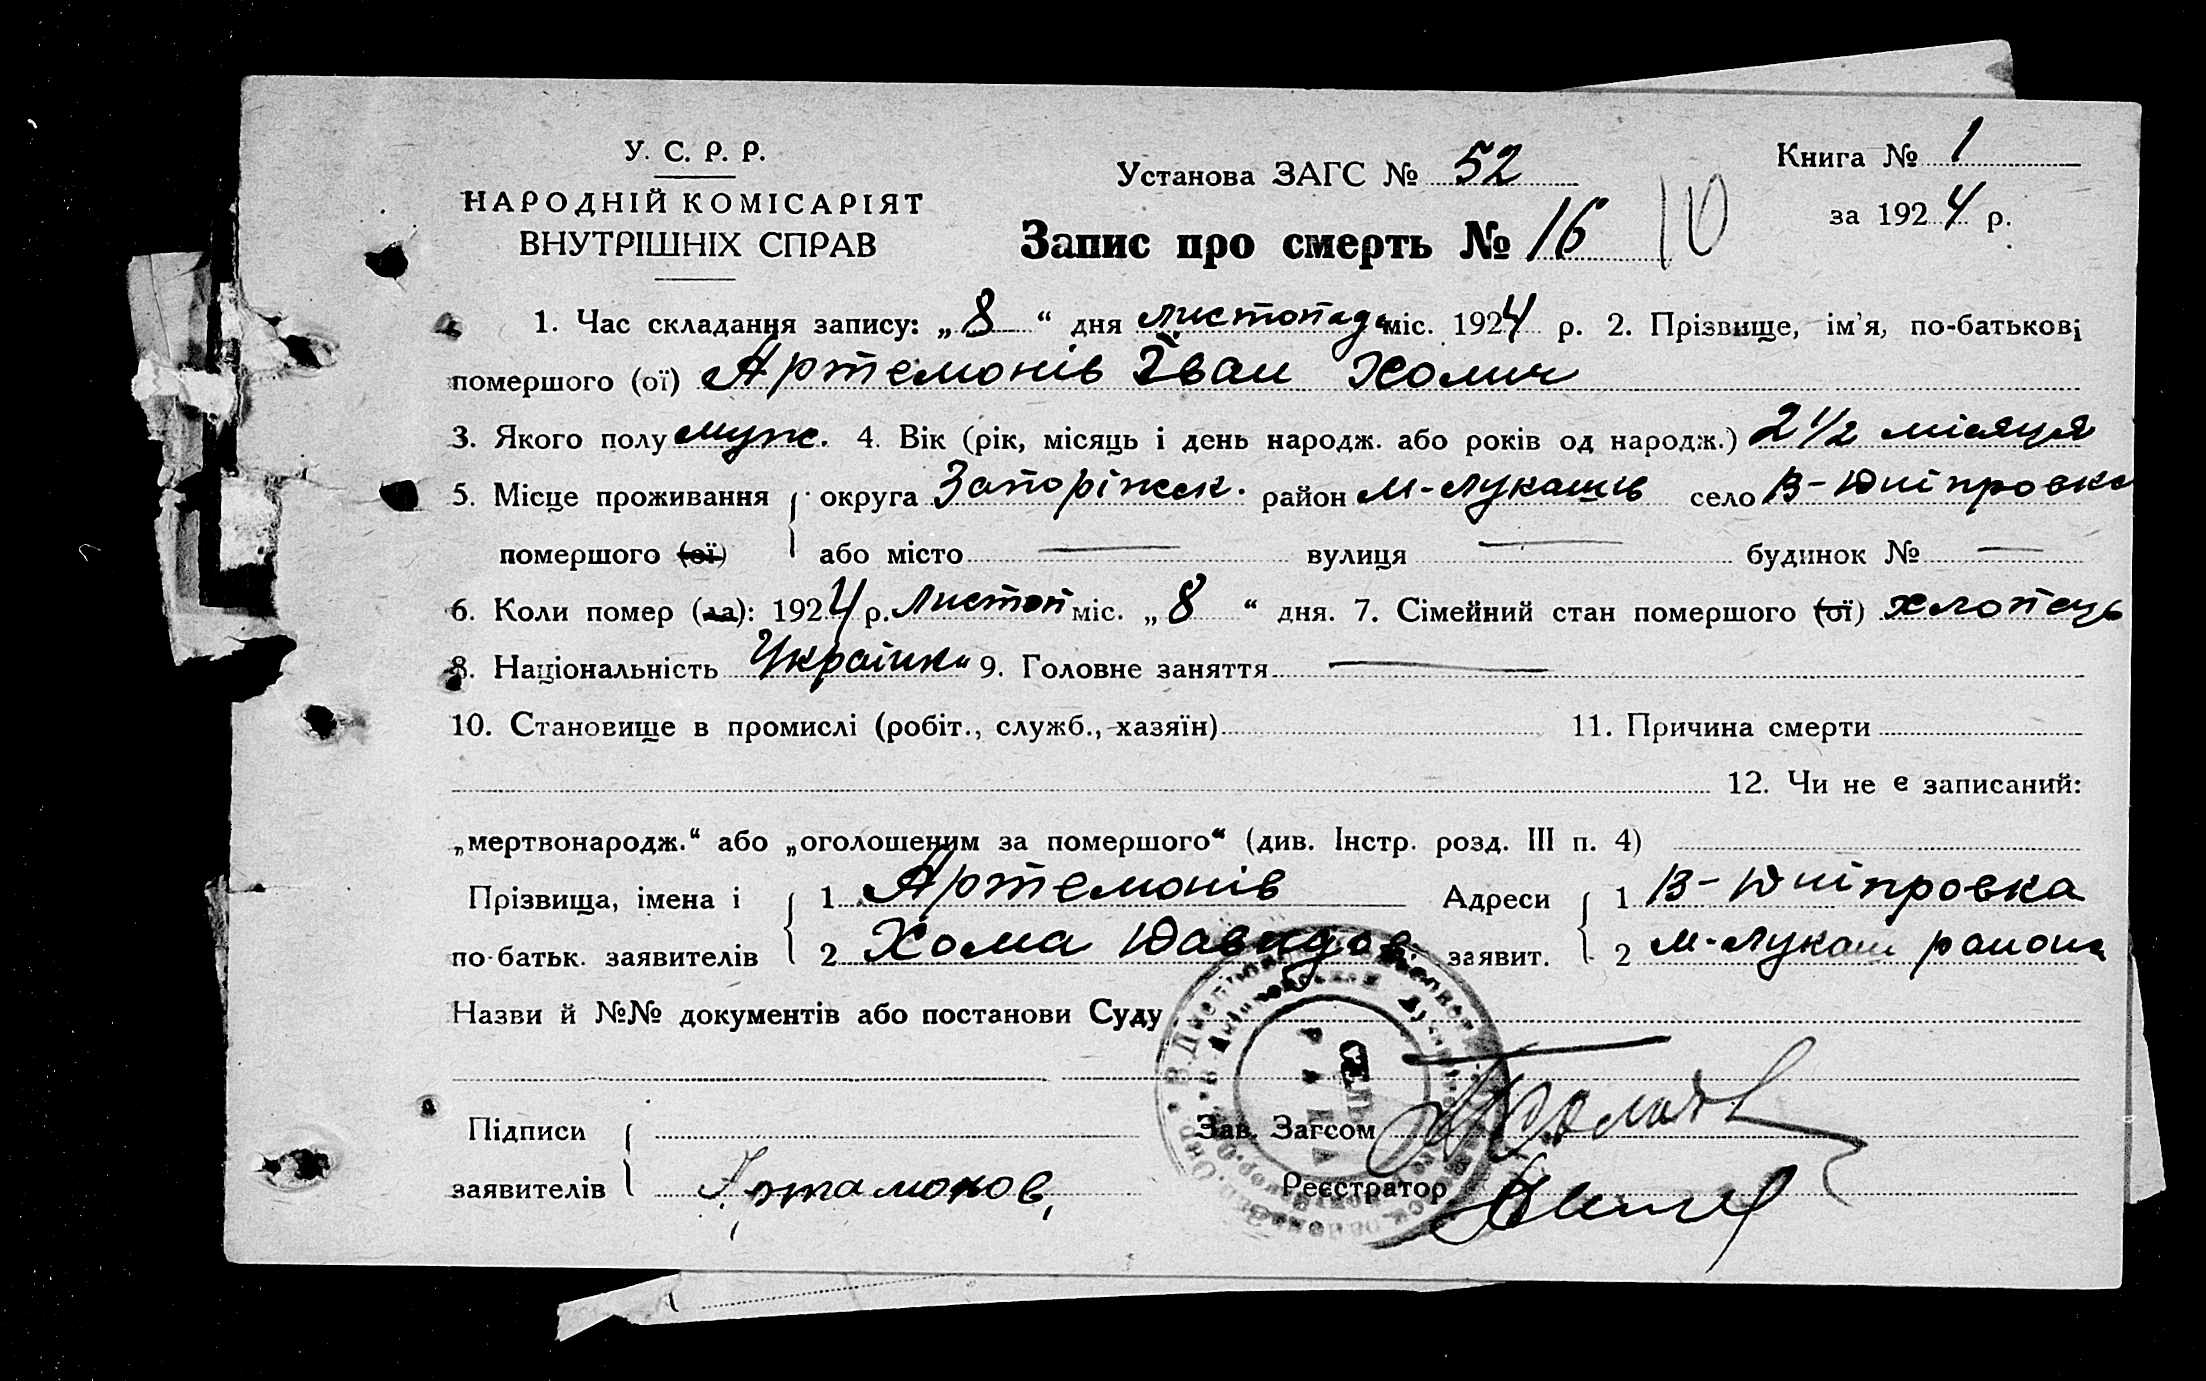 У. С. Р. Р.
НАРОДНІЙ КОМІСАРІЯТ
ВНУТРІШНІХ СПРАВ
Установа ЗАГС № 52
Книга № 1
за 1924 р.
Запис про смерть № 16 10
1. Час складання запису: „ 8 “ дня листопада міс. 1924 р. 2. Прізвище, ім'я, по-батькові
помершого (ої) Артемонів Іван Хомич
3. Якого полу муж. 4. Вік (рік, місяць і день народж. або років од народж.) 2 1/2 місяця
5. Місце проживання округа Запоріжськ. район М-Лукашів село В-Дніпровка
помершого (ої) або місто — вулиця — будинок № —
6. Коли помер (ла): 1924 р. Листоп міс. „ 8 “ дня. 7. Сімейний стан помершого (ої) хлопець
8. Національність 9. Головне заняття —
10. Становище в промислі (робіт., служб., хазяїн) 11. Причина смерти
12. Чи не є записаний:
„мертвонародж.“ або „оголошеним за помершого“ (див. Інстр. розд. III п. 4)
Прізвища, імена і 1 Артемонів Адреси 1 В-Дніпровка
по-батьк. заявителів 2 Хома Давидов. заявит. 2 М-Лукаш района
Назви й №№ документів або постанови Суду
Підписи Зав. Загсом
заявителів Артамонов, Реєстратор